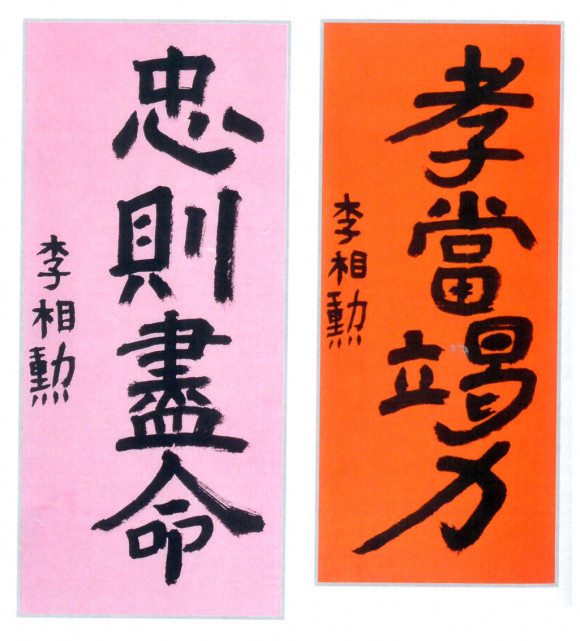 孝當竭力
李相勲
忠則盡命
李相勲